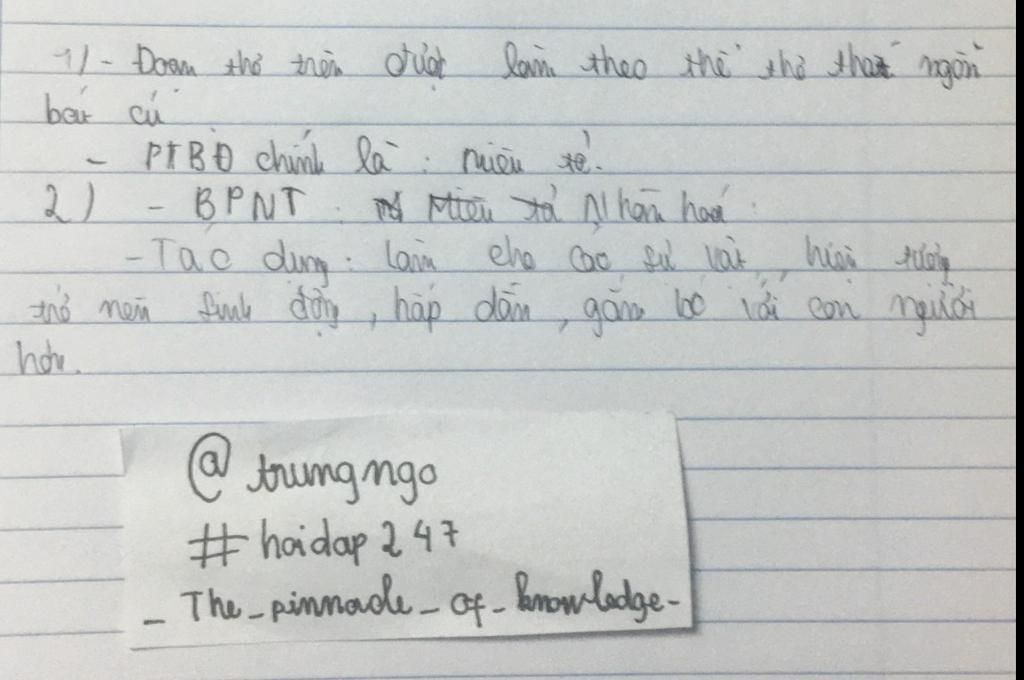 1) - Đoạn thơ trên được làm theo thể thơ thất ngôn
bát cú
- PTBĐ chính là : miêu tả.
2) - BPNT : Miêu tả Nhân hoá.
- Tác dụng : làm cho các sự vật, hiện tượng
trở nên sinh động, hấp dẫn, gần với con người
hơn.
@trungngo
#hoidap247
_ The_pinnacle_of_knowledge_